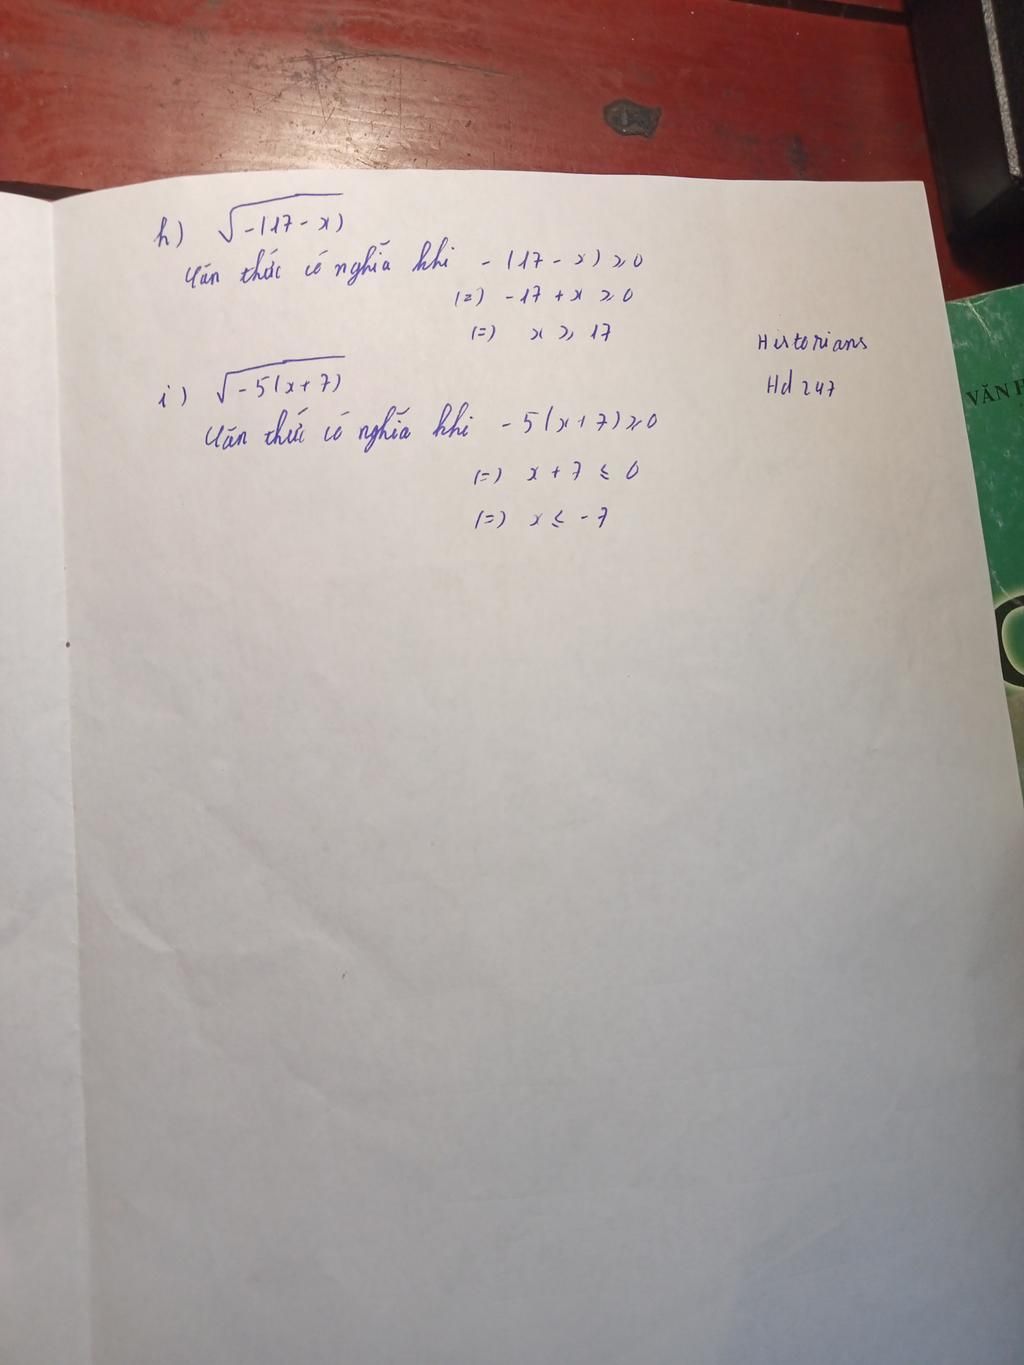 h) √-(17 - x)
Căn thức có nghĩa khi - (17 - x) ≥ 0
(=) -17 + x ≥ 0
(=) x ≥ 17
Historians
Hd 247
i) √-5(x + 7)
Căn thức có nghĩa khi - 5(x + 7) ≥ 0
(=) x + 7 ≤ 0
(=) x ≤ -7
VĂN